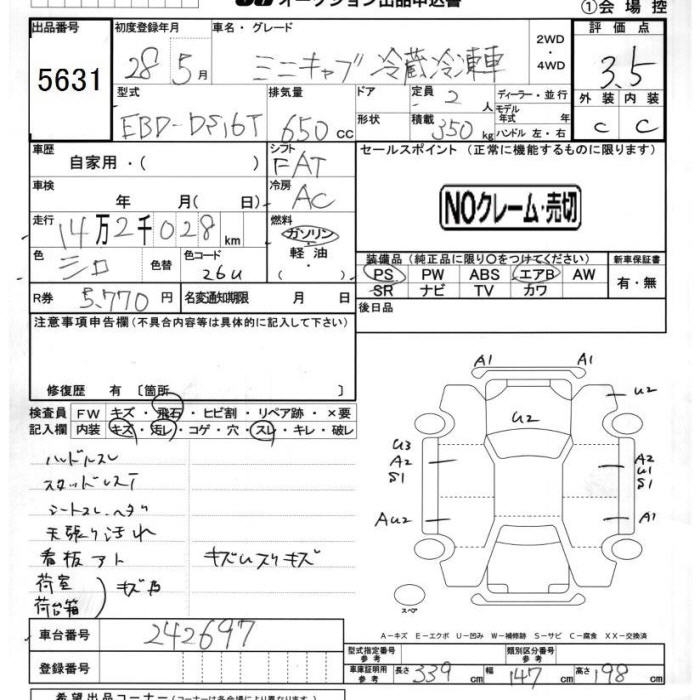 オークション出品申込書
①会場控
出品番号
5631
初度登録年月
28 5月
車名・グレード
ミニキャブ 冷蔵冷凍車
2WD
・
4WD
評価点
3.5
外装 内装
C C
型式
EBD-DS16T
排気量
650cc
ドア
形状
定員 2人
積載 350kg
ディーラー・並行
モデル
年式 年
ハンドル 左・右
車歴
自家用・( )
シフト
FAT
車検
年 月( 日)
冷房
AC
走行
14万2千028km
燃料
ガソリン
・
軽油
( )
色
シロ
色替
色コード
26U
R券 5,770円
名変通知期限 月 日
セールスポイント (正常に機能するものに限ります)
NOクレーム・売切
装備品(純正品に限り○をつけてください)
PS PW ABS エアB AW
SR ナビ TV カワ
新車保証書
有・無
後日品
注意事項申告欄(不具合内容等は具体的に記入して下さい)
修復歴 有 〔箇所 〕
検査員 FW キズ・飛石・ヒビ割・リペア跡・×要
記入欄 内装 キズ・汚レ・コゲ・穴・スレ・キレ・破レ
ハンドルスレ
スタッドレスT
シートスレ・ヘタ
天張り汚れ
看板アト キズUスリキズ
荷室
荷台箱
A1 A1
U2
U2
U3
A2
S1
A2
U1
S1
AU2
A1
スペア
A－キズ E－エクボ U－凹み W－補修跡 S－サビ C－腐食 XX－交換済
車台番号 242697
登録番号
型式指定番号
参考
類別区分番号
参考
車庫証明用
参考
長さ 339cm 幅 147cm 高さ 198cm
希望出品コーナー(コーナーは各会場により異なります)